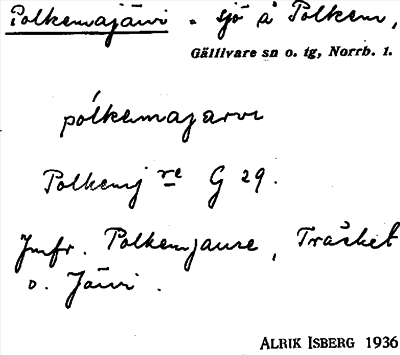 Polkemajärvi . sjö å Polkem,
Gällivare sn o. tg, Norrb. l.
pólkemajarvi
Polkemj re G 29.
Jmfr. Polkemjaure, Träsket
o. Järvi.
ALRIK ISBERG 1936